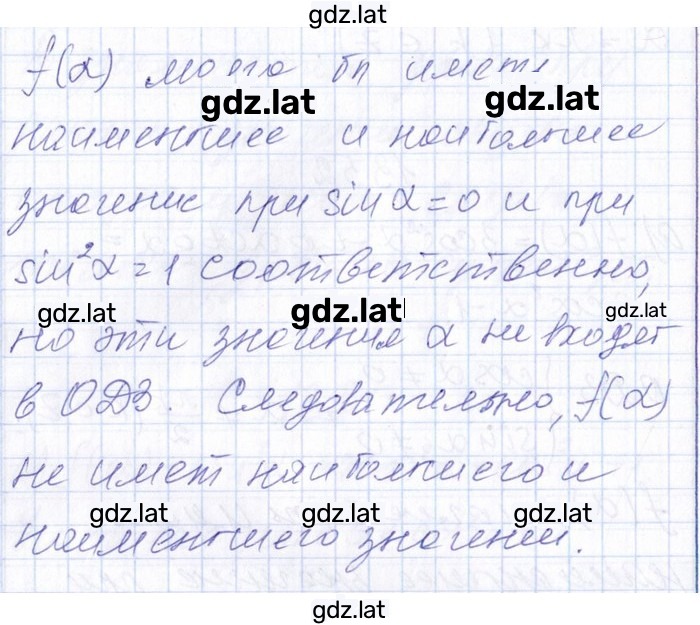 gdz.lat
f(α) могла бы иметь
gdz.lat gdz.lat
наименьшее и наибольшее
значение при sin α = 0 и при
sin²α = 1 соответственно,
gdz.lat gdz.lat gdz.lat
но эти значения α не входят
в ОДЗ. Следовательно, f(α)
не имеет наибольшего и
gdz.lat gdz.lat gdz.lat
наименьшего значений.
gdz.lat